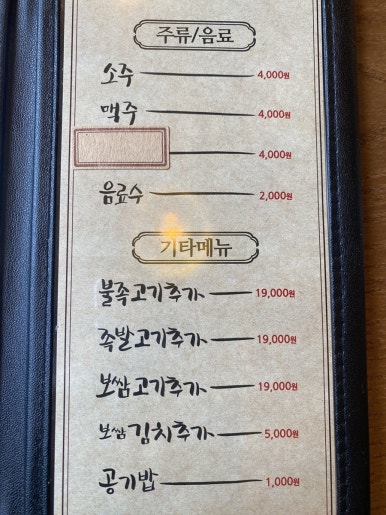 주류/음료
소주 4,000원
맥주 4,000원
4,000원
음료수 2,000원
기타메뉴
불족고기추가 19,000원
족발고기추가 19,000원
보쌈고기추가 19,000원
보쌈김치추가 5,000원
공기밥 1,000원